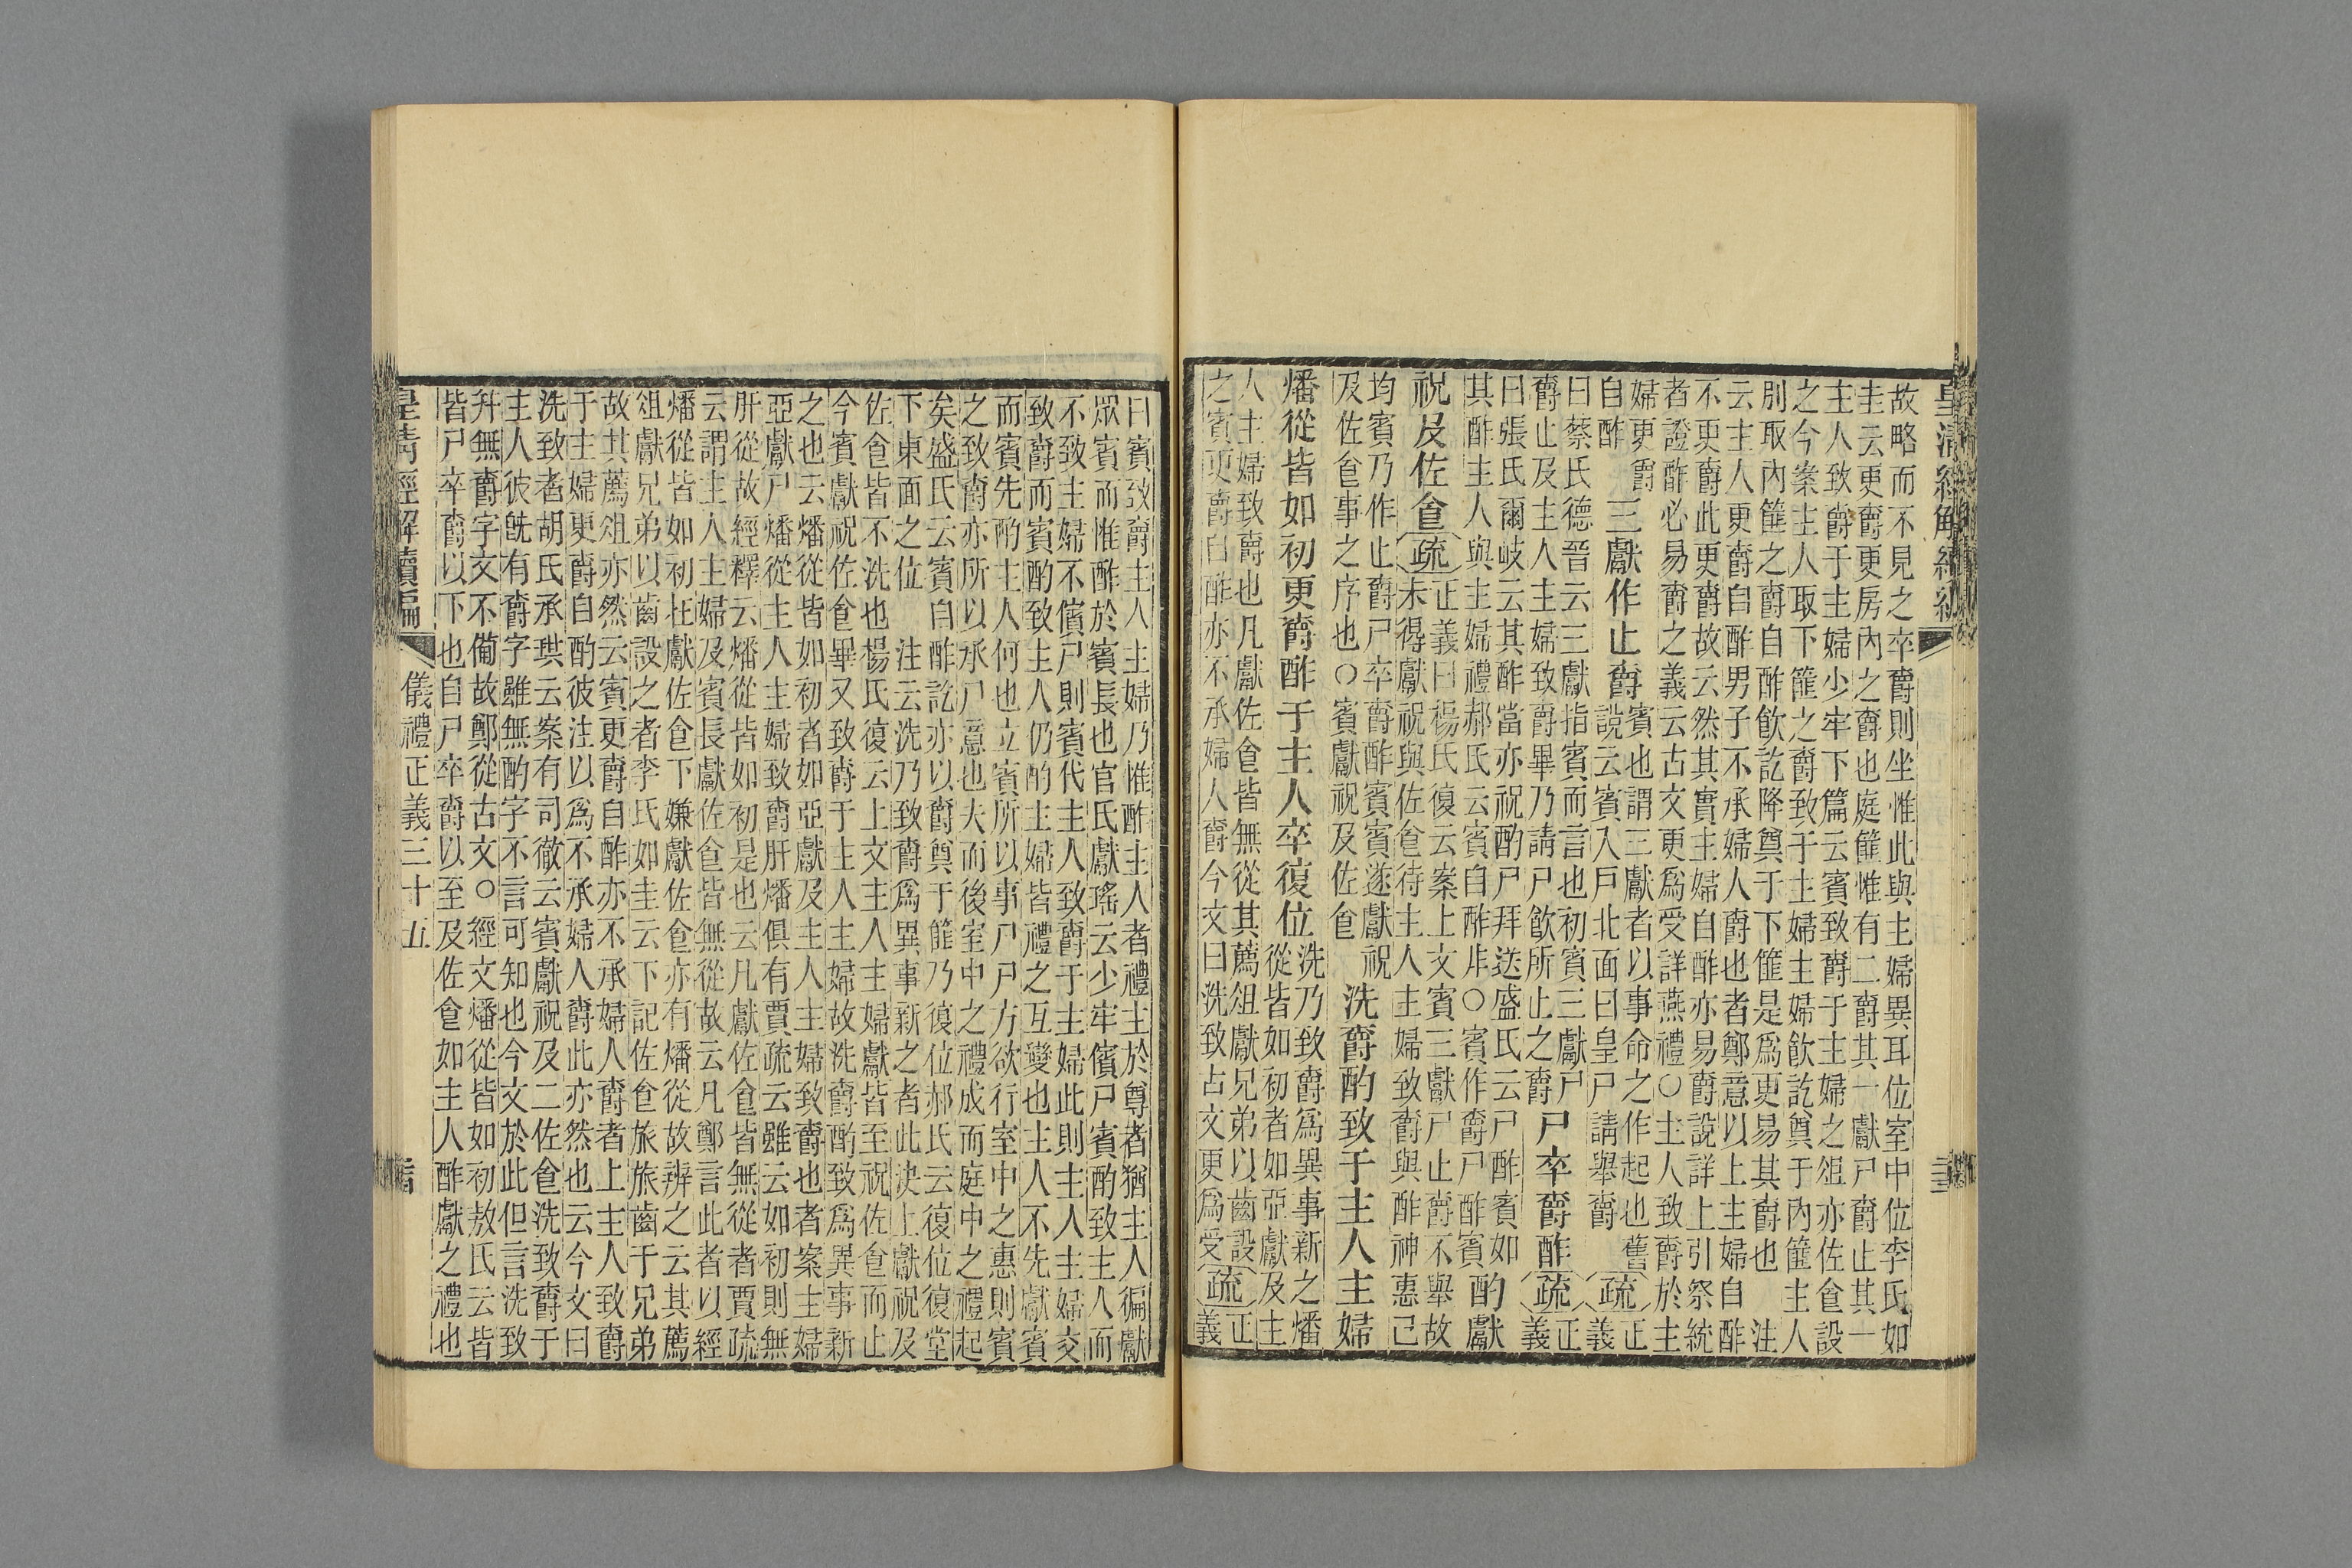 皇清經解續編
故略而不見之卒爵則坐惟此與主婦異耳位室中位李氏如
圭云更爵更房內之爵也庭篚惟有二爵其一獻尸爵止其一
主人致爵于主婦少牢下篇云賓致爵于主婦之俎亦佐食設
之今案主人取下篚之爵致于主婦主婦飮訖奠于內篚主人
別取內篚之爵自酢飮訖降奠于下篚是爲更易其爵也　注
云主人更爵自酢男子不承婦人爵也者鄭意以上主婦自酢
不更爵此更爵故云然其實主婦自酢亦易爵說詳上引祭統
者證酢必易爵之義云古文更爲受詳燕禮○主人致爵於主
婦更爵
自酢
三獻作止爵
賓也謂三獻者以事命之作起也舊
說云賓入戶北面曰皇尸請舉爵
疏
正
義
曰蔡氏德晉云三獻指賓而言也初賓三獻尸
爵止及主人主婦致爵畢乃請尸飮所止之爵
尸卒爵酢
疏
正
義
曰張氏爾岐云其酢當亦祝酌尸拜送盛氏云尸酢賓如
其酢主人與主婦禮郝氏云賓自酢非○賓作爵尸酢賓
酌獻
祝及佐食
疏
正義曰楊氏復云案上文賓三獻尸止爵不舉故
未得獻祝與佐食待主人主婦致爵與酢神惠己
均賓乃作止爵尸卒爵酢賓賓遂獻祝
及佐食事之序也○賓獻祝及佐食
洗爵酌致于主人主婦
燔從皆如初更爵酢于主人卒復位
洗乃致爵爲異事新之燔
從皆如初者如亞獻及主
人主婦致爵也凡獻佐食皆無從其薦俎獻兄弟以齒設
之賓更爵自酢亦不承婦人爵今文曰洗致古文更爲受
疏
正
義
曰賓致爵主人主婦乃惟酢主人者禮主於尊者猶主人徧獻
眾賓而惟酢於賓長也官氏獻瑤云少牢儐尸賓酌致主人而
不致主婦不儐尸則賓代主人致爵于主婦此則主人主婦交
致爵而賓酌致主人仍酌主婦皆禮之互變也主人不先獻賓
而賓先酌主人何也立賓所以事尸尸方欲行室中之惠則賓
之致爵亦所以承尸意也夫而後室中之禮成而庭中之禮起
矣盛氏云賓自酢訖亦以爵奠于篚乃復位郝氏云復位復堂
下東面之位　注云洗乃致爵爲異事新之者此決上獻祝及
佐食皆不洗也楊氏復云上文主人主婦獻皆至祝佐食而止
今賓獻祝佐食畢又致爵于主人主婦故洗爵酌致爲異事新
之也云燔從皆如初者如亞獻及主人主婦致爵也者案主婦
亞獻尸燔從主人主婦致爵肝燔俱有賈疏云雖云如初則無
肝從故經釋云燔從皆如初是也云凡獻佐食皆無從者賈疏
云謂主人主婦及賓長獻佐食皆無從故云凡鄭言此者以經
燔從皆如初在獻佐食下嫌獻佐食亦有燔從故辨之云其薦
俎獻兄弟以齒設之者李氏如圭云下記佐食旅旅齒于兄弟
故其薦俎亦然云賓更爵自酢亦不承婦人爵者上主人致爵
于主婦更爵自酌彼注以爲不承婦人爵此亦然也云今文曰
洗致者胡氏承珙云案有司徹云賓獻祝及二佐食洗致爵于
主人彼旣有爵字雖無酌字不言可知也今文於此但言洗致
幷無爵字文不備故鄭從古文○經文燔從皆如初敖氏云皆
皆尸卒爵以下也自尸卒爵以至及佐食如主人酢獻之禮也
皇清經解續編
儀禮正義三十五